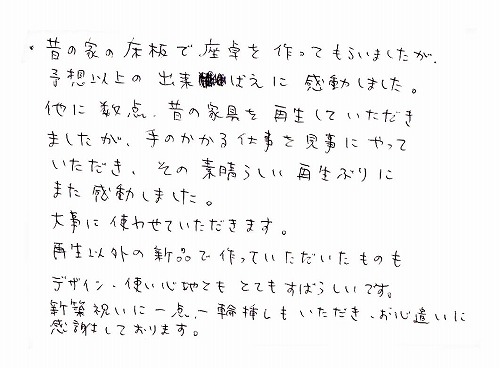 昔の家の床板で、座卓を作ってもらいましたが、
予想以上の出来ばえに感動しました。
他に数点、昔の家具を再生していただき
ましたが、手のかかる仕事を見事にやって
いただき、その素晴らしい再生ぶりに
また感動しました。
大事に使わせていただきます。
再生以外の新品で作っていただいたものも
デザイン・使い心地とも とてもすばらしいです。
新築祝いに一点、一輪挿しもいただき、お心遣いに
感謝しております。